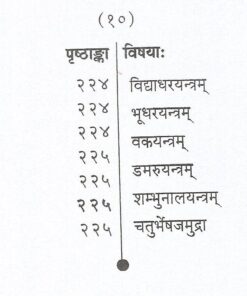 (१०)
पृष्ठाङ्का विषयाः
२२४ विद्याधरयन्त्रम्
२२४ भूधरयन्त्रम्
२२४ वकयन्त्रम्
२२५ डमरुयन्त्रम्
२२५ शम्भुनालयन्त्रम्
२२५ चतुर्भेषजमुद्रा